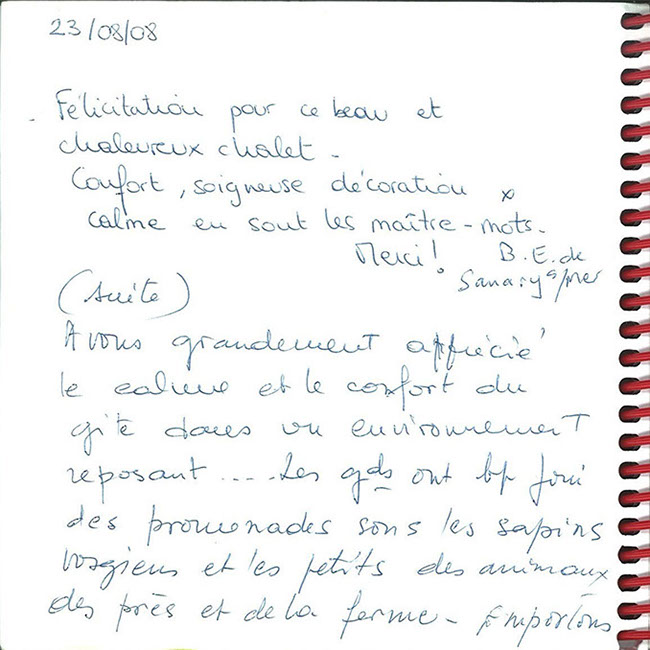 23/08/08
Félicitation pour ce beau et
chaleureux chalet.
Confort, soigneuse décoration x
calme en sont les maître-mots.
Merci! B.E. de
Sanary s/mer
(suite)
Avons grandement apprécié
le calme et le confort du
gîte dans un environnement
reposant .... Les gds ont bp joui
des promenades sous les sapins
vosgiens et les petits des animaux
des près et de la ferme - Emportons